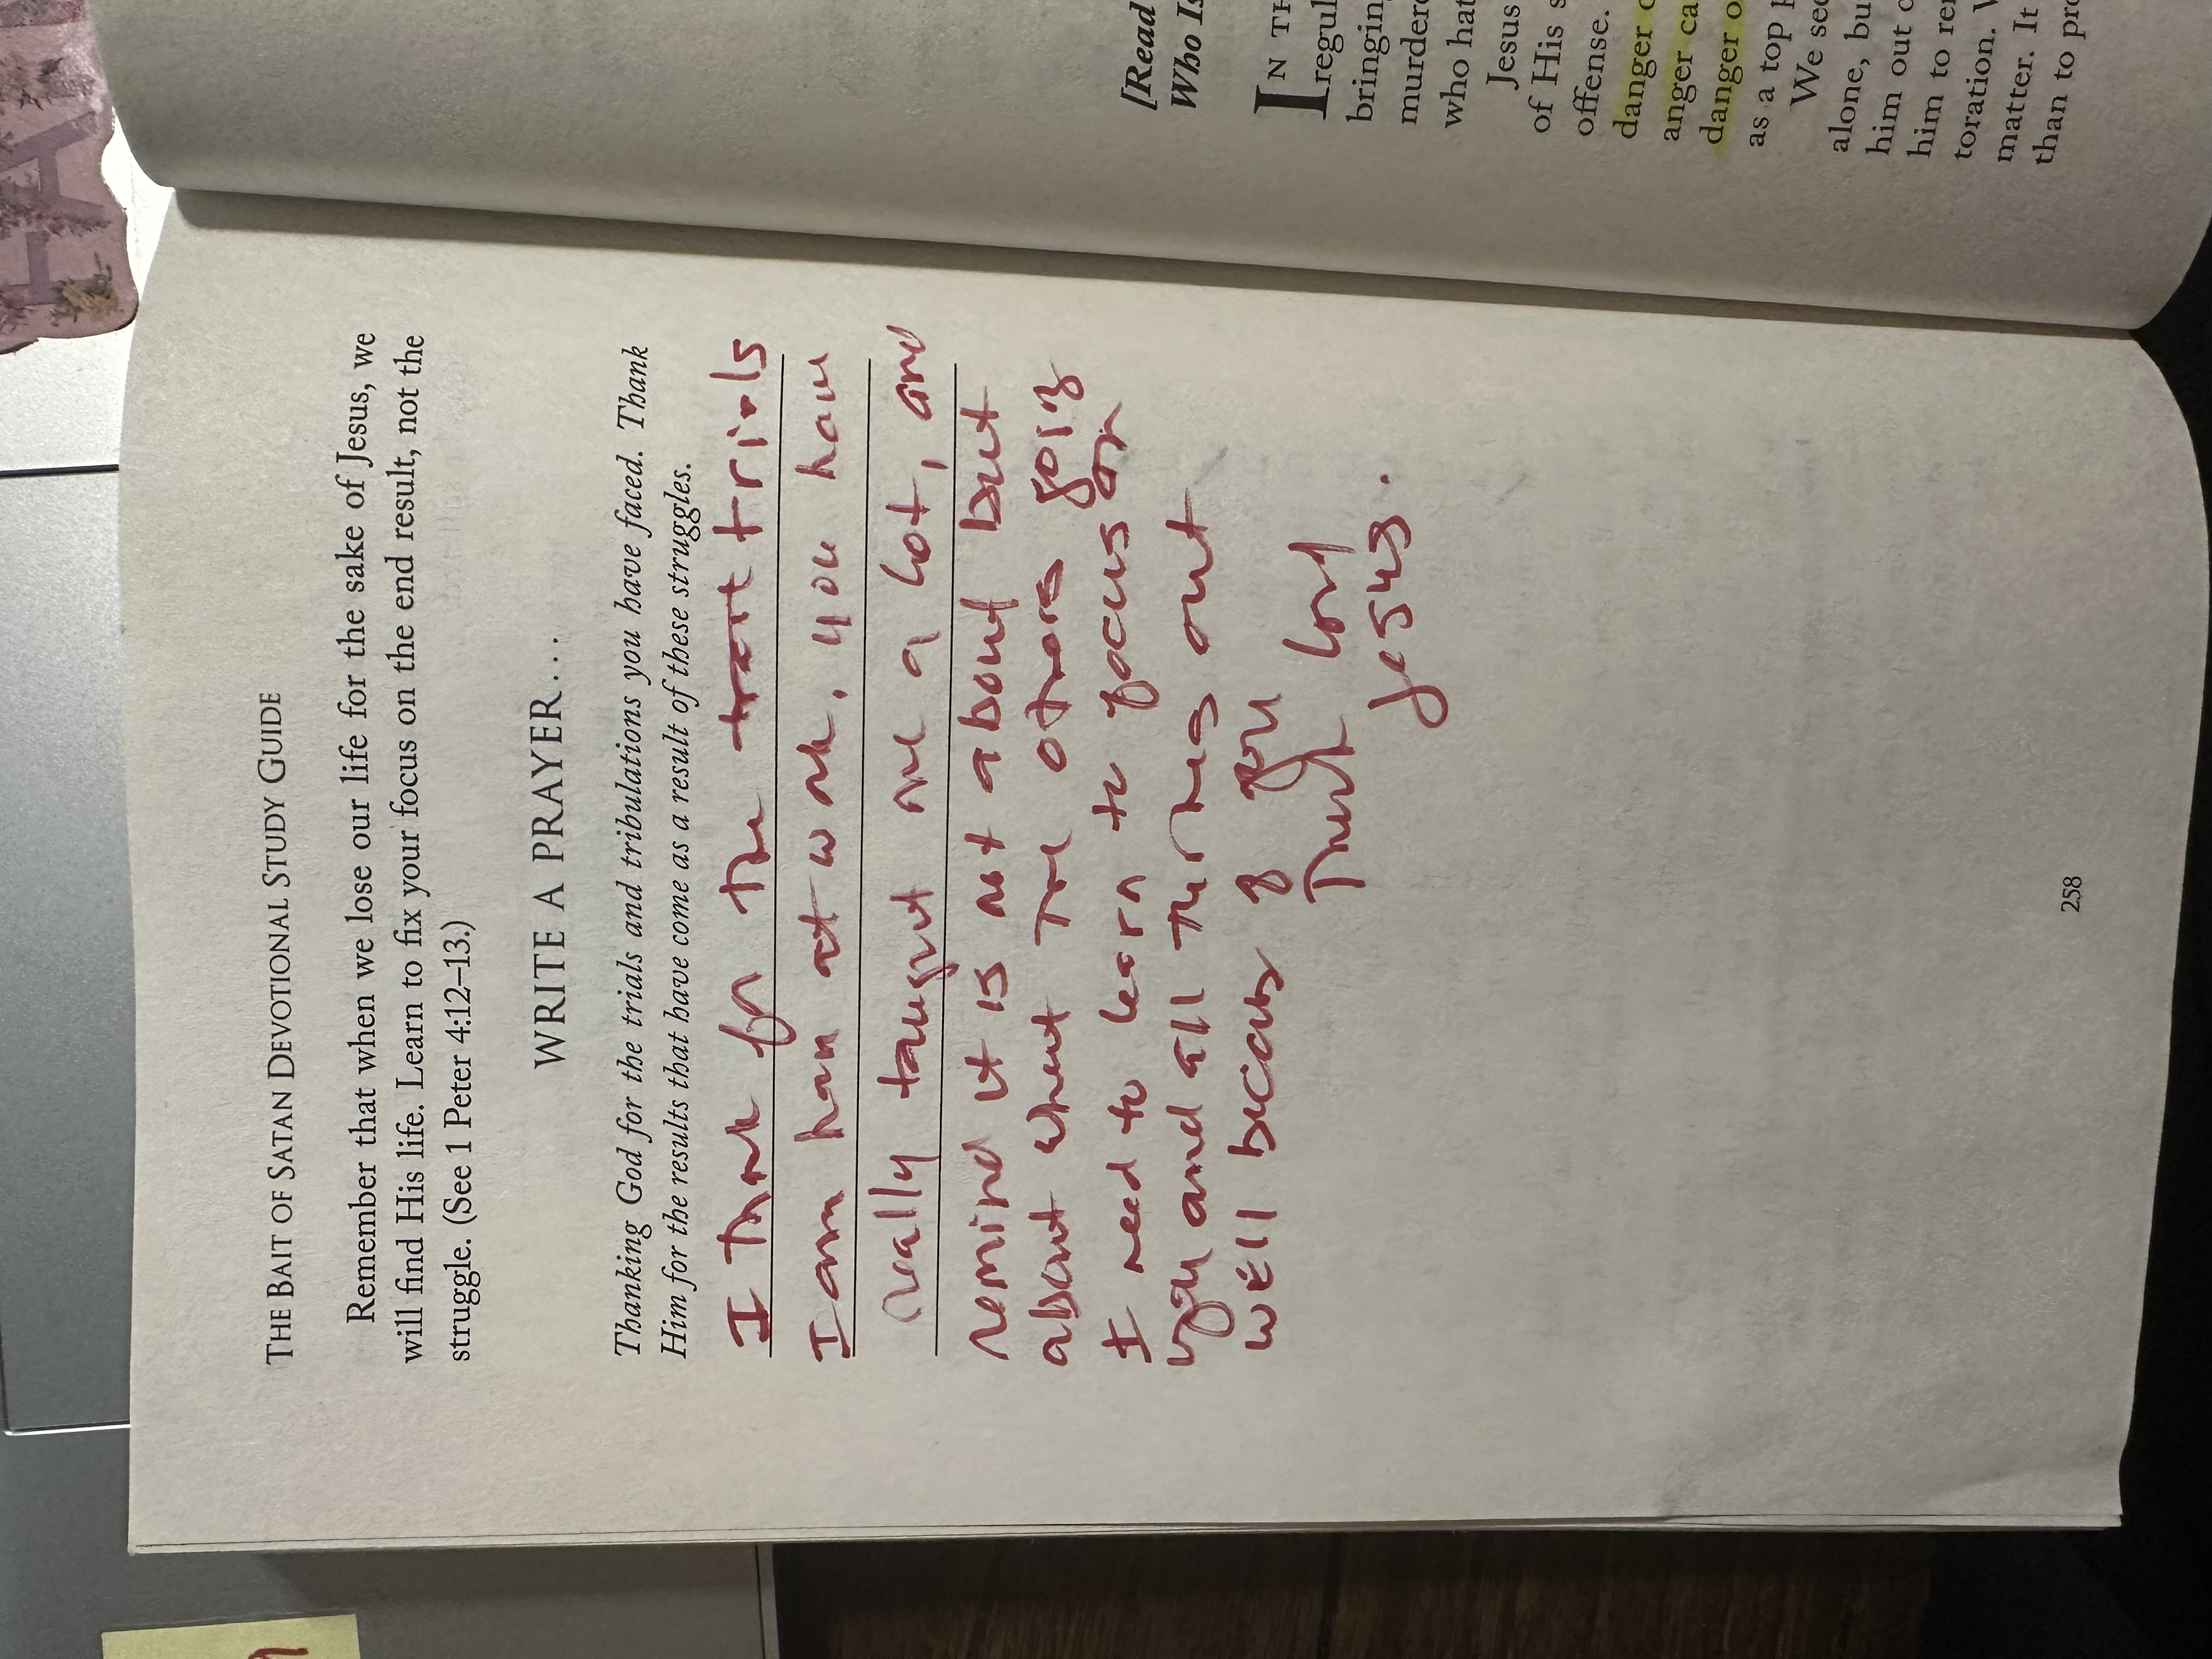 THE BAIT OF SATAN DEVOTIONAL STUDY GUIDE
Remember that when we lose our life for the sake of Jesus, we
will find His life. Learn to fix your focus on the end result, not the
struggle. (See 1 Peter 4:12–13.)
WRITE A PRAYER...
Thanking God for the trials and tribulations you have faced. Thank
Him for the results that have come as a result of these struggles.
I Thank for the trials
I am at work, you have
really taught me a lot, and
remind it is not about but
about what the others going
I need to learn to focus on
you and all things out
well because of you
Thank Lord
Jesus.
258
[Read
Who Is
IN TH
regul
bringing
murdere
who hat
Jesus
of His s
offense.
danger o
anger ca
danger o
as a top p
We see
alone, bu
him out o
him to re
toration. W
matter. It
than to pro